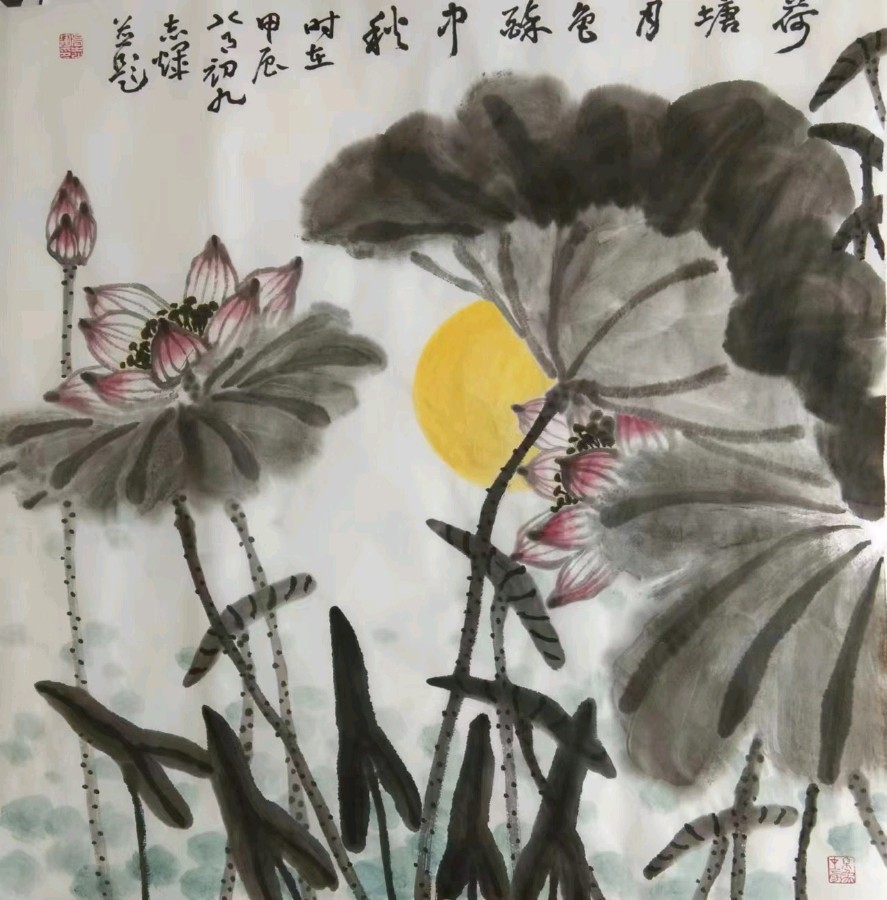 荷塘月色醉中秋
时在
甲辰
八月初九
志
并题